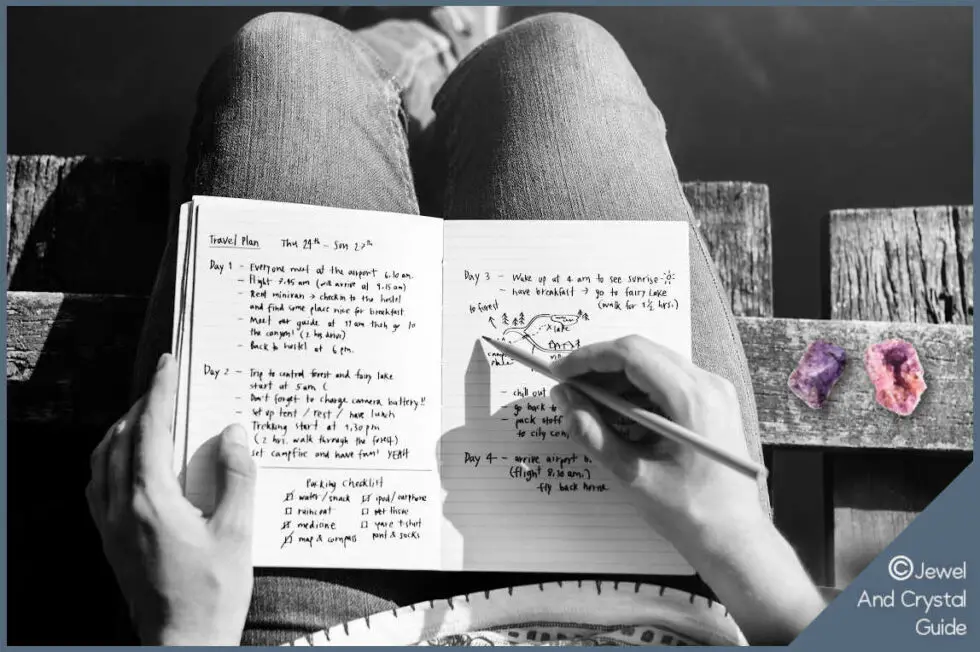 Travel Plan Thu 24th - Sun 27th
Day 1 - Everyone meet at the airport 6.10 am.
- Flight 7.45 am (will arrive at 9.15 am)
- Rent minivan → check in to the hostel
and find some place nice for breakfast
- Meet our guide at 11 am then go to
the canyon! (2 hrs drive)
- Back to hostel at 6 pm.
Day 2 - Trip to central forest and fairy lake
start at 5 am (
- Don't forget to charge camera battery!!
- Set up tent / rest / have lunch
Trekking start at 1.30 pm
(2 hrs. walk through the forest)
set campfire and have fun! YEAH
Packing Checklist
water/snack
raincoat
medicine
map & compass
ipod/earphone
wet tissue
t-shirt
pant & socks
Day 3 - Wake up at 4 am to see sunrise
- have breakfast → go to fairy Lake
(walk for 1 1/2 hrs.)
to forest
lake
- chill out
- go back to
- pack stuff
to city
Day 4 - arrive airport 6.
(flight 8.30 am.)
fly back home
©Jewel
And Crystal
Guide